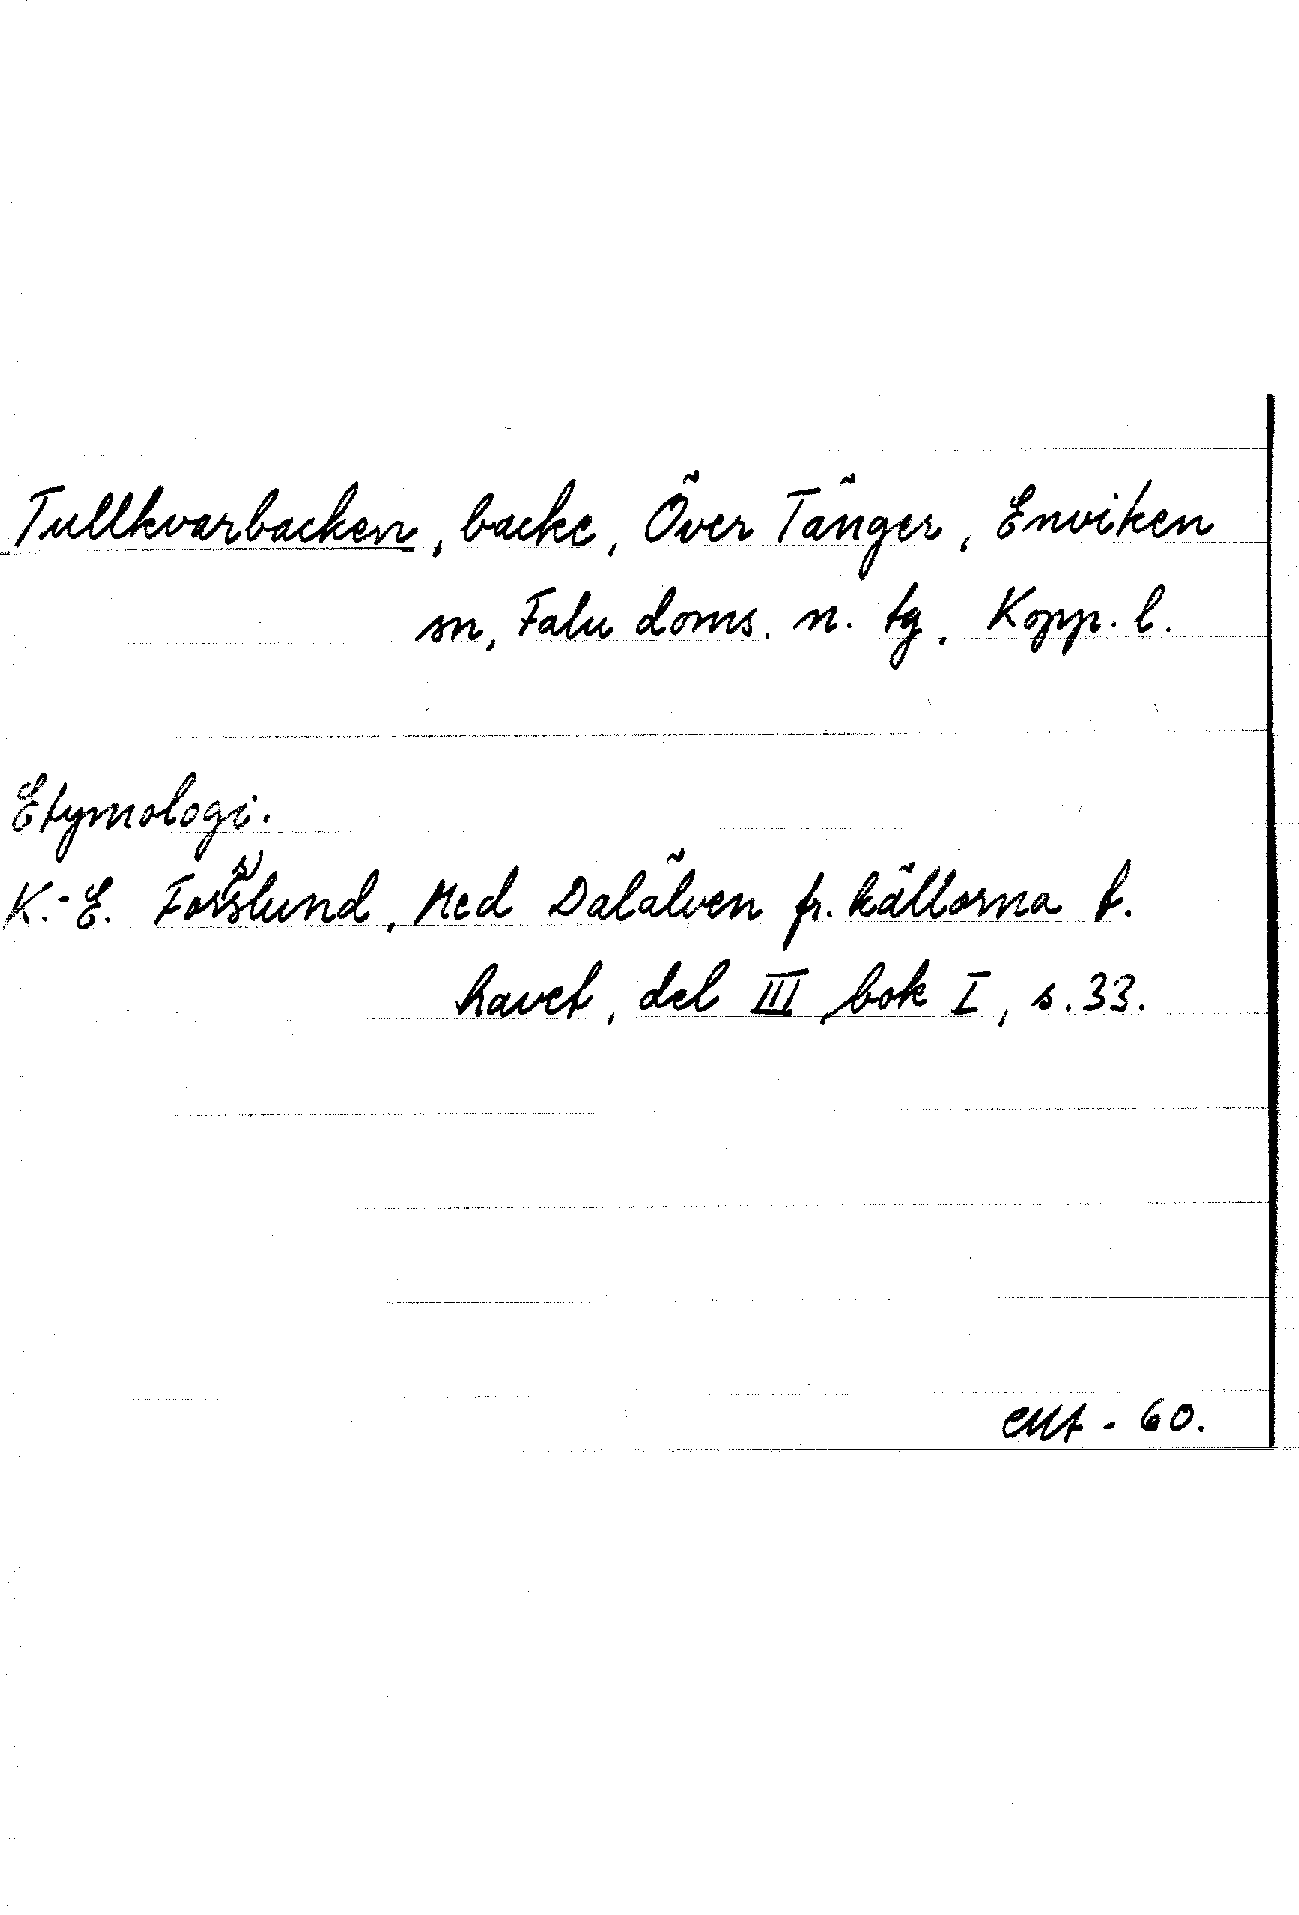 Tullkvarbacken, backe, Över Tänger, Enviken
sn, Falu doms. n. tg. Kopp. l.
Etymologi.
K.-E. Forsslund, Med Dalälven fr. källorna t.
havet, del III, bok I, s. 33.
- 60.